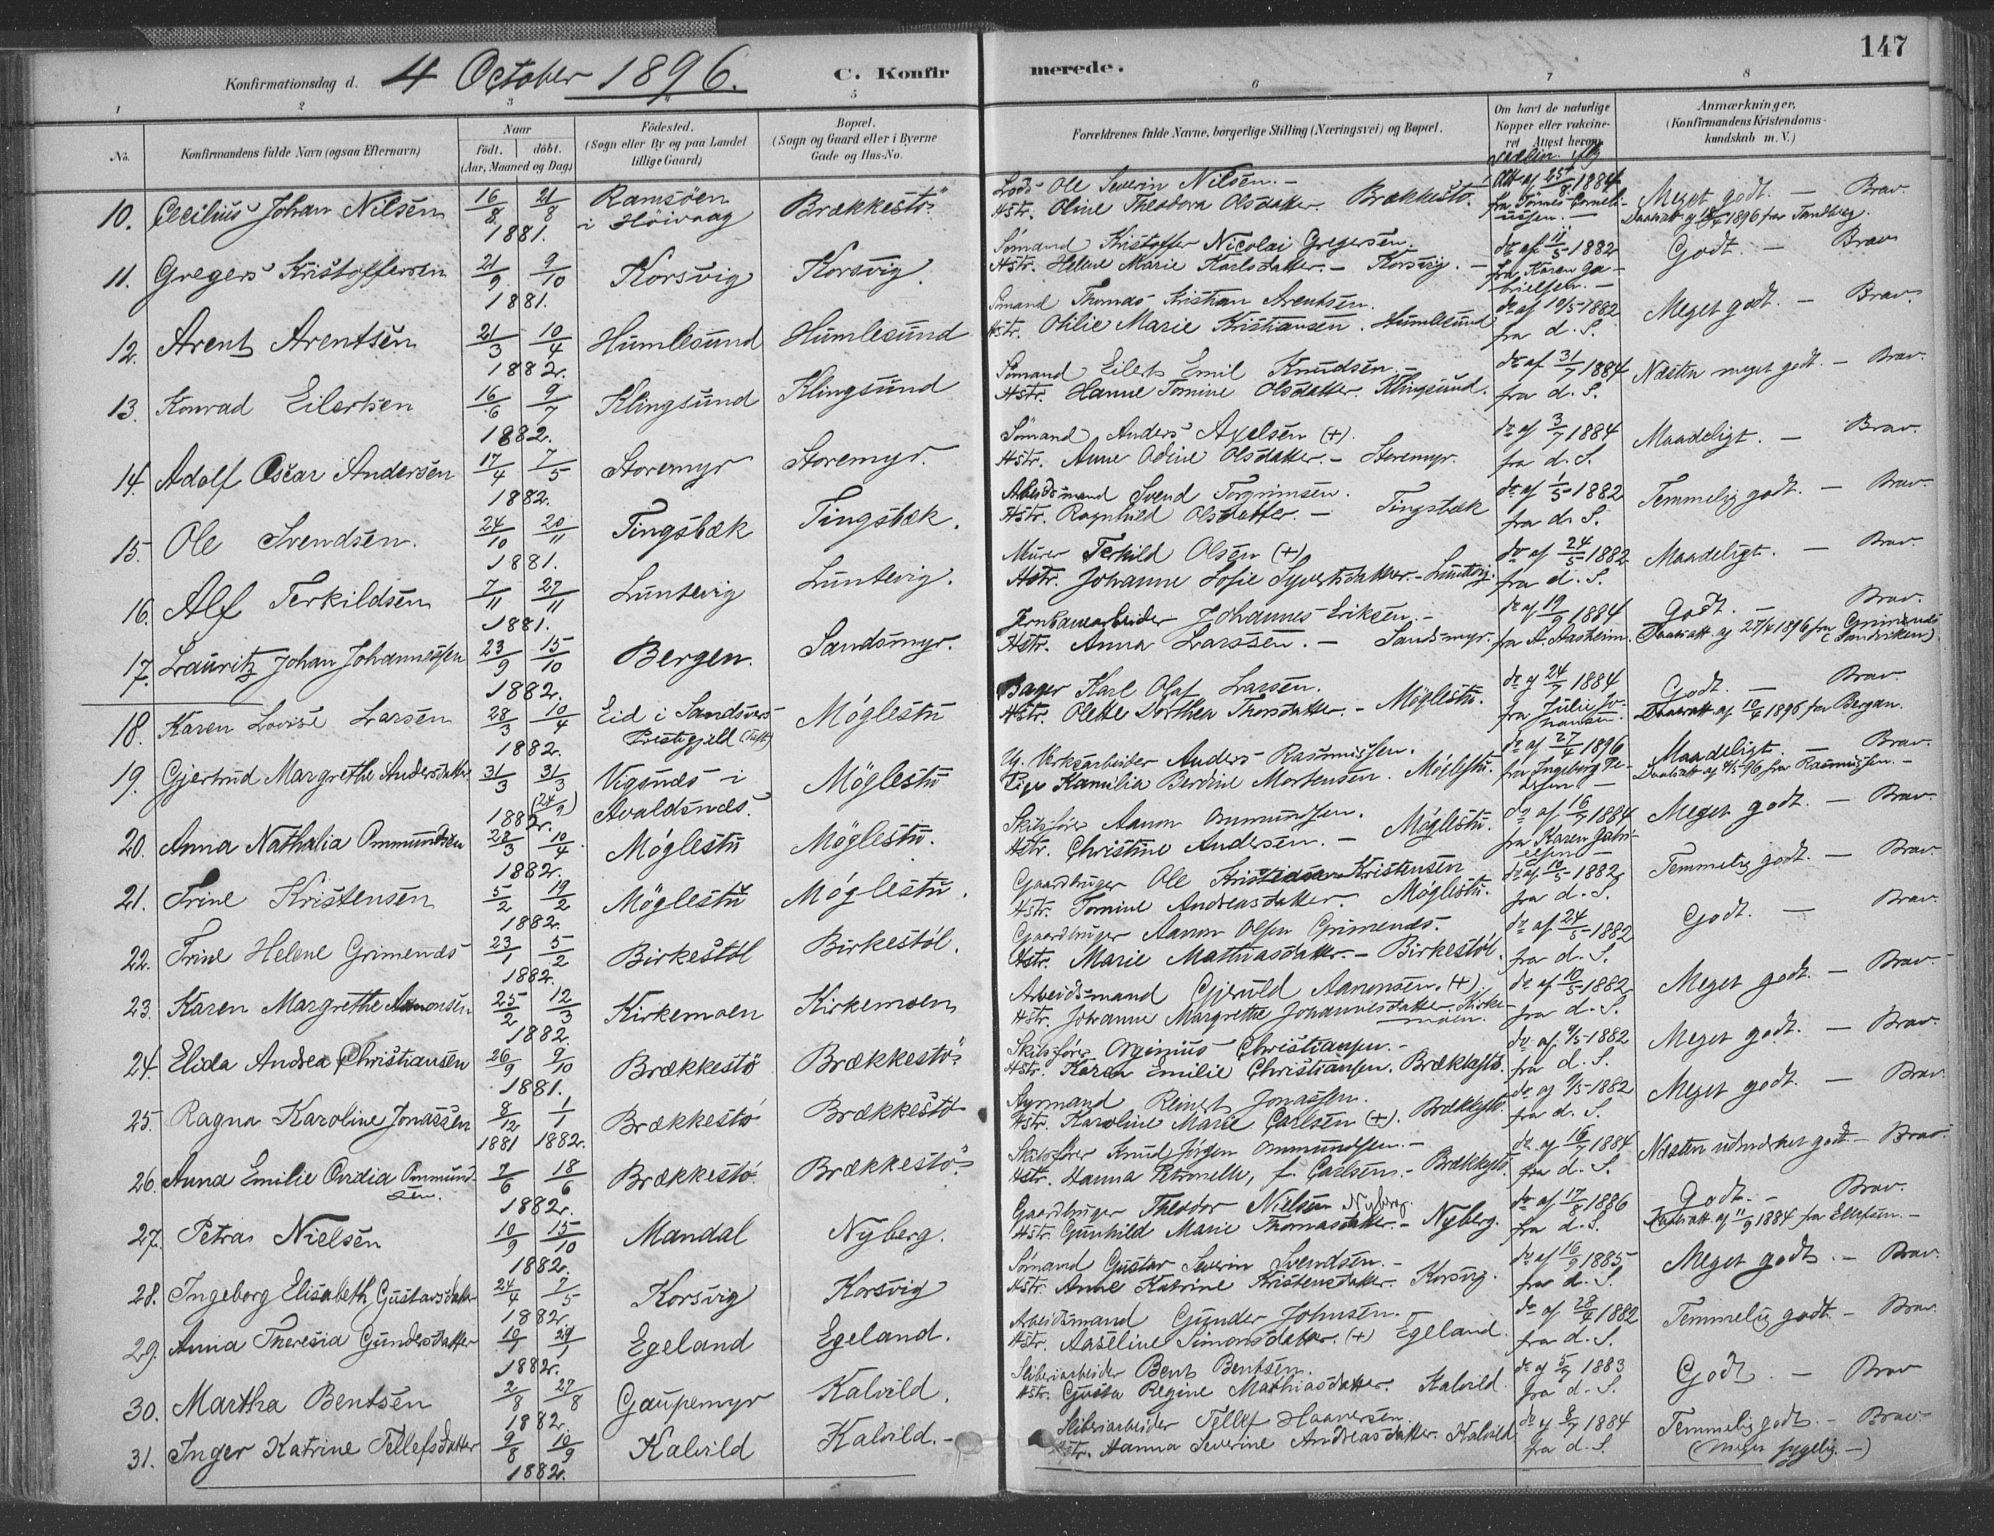 147
Konfirmationsdag d. 4 October 1896.
C. Konfirmerede.
1 2 3 5 6 7 8
No.
Konfirmandens fulde Navn (ogsaa Efternavn)
Naar
født. døbt.
(Aar, Maaned og Dag)
Fødested.
(Sogn eller By og paa Landet
tillige Gaard)
Bopæl.
(Sogn og Gaard eller i Byerne
Gade og Hus-No.
Forældrenes fulde Navne, borgerlige Stilling (Næringsvei) og Bopæl.
Om havt de naturlige
Kopper eller vaccine-
ret Attest herom
Anmærkninger.
(Konfirmandens Kristendoms-
kundskab m. V.)
10. Cecilius Johan Nilsen 16/8 21/8 1881. Ramsöen i Höivaag Brækkestö
Lods Ole Severin Nilsen.
Hstr. Oline Theodora Olsdatter. Brækkestö.
Att af 25/8 1884 fra Tönnes Corneliussen.
Meget godt. — Brav.
11. Gregers Kristoffersen 21/9 9/10 1881. Korsvig Korsvig.
Sömand Kristoffer Nicolai Gregersen.
Hstr. Helene Marie Karlsdatter. — Korsvig.
do af 11/5 1882 fra Karen Gabrielsen.
Godt. — Brav
12. Arent Arentsen 21/3 10/4 1882. Humlesund Humlesund
Sömand Thomas Kristian Arentsen.
Hstr. Otilie Marie Kristiansen. Humlesund
do af 10/5 1882 fra d. S.
Meget godt. — Brav.
13. Konrad Eilertsen 16/6 9/7 1882. Klingsund Klingsund
Sömand Eilert Emil Knudsen.
Hstr. Hanne Tomine Olsdatter. Klingsund.
do af 31/7 1884 fra d. S.
Næsten meget godt. — Brav.
14. Adolf Oscar Andersen 17/4 7/5 1882. Storemyr Storemyr.
Sömand Anders Axelsen (+).
Hstr. Anne Odine Olsdatter. — Storemyr.
do af 3/7 1884 fra d. S.
Maadeligt. — Brav.
15. Ole Svendsen. 24/10 20/11 1881. Tingsbæk Tingsbæk.
Arbeidsmand Svend Torgrimsen.
Hstr. Ragnhild Olsdatter. — Tingsbæk
do af 1/5 1882 fra d. S.
Temmelig godt. — Brav.
16. Alf Terkildsen 7/11 27/11 1881. Luntevig Luntevig.
Murer Terkild Olsen (+)
Hstr. Johanne Sofie Syvertsdatter. — Luntevig.
do af 24/5 1882 fra d. S.
Maadeligt. — Brav.
17. Lauritz Johan Johannessen 23/9 15/10 1882. Bergen. Sandsmyr.
Jernbanearbeider Johannes Eriksen. —
Hstr. Anna Larssen. — Sandsmyr.
do af 19/9 1884 fra A. Aasheim.
Godt. — Brav.
18. Karen Lovise Larsen 28/3 10/4 1882. Eid i Sandsvers Prestegjeld (Tuft) Möglestu
Bager Karl Olaf Larsen.
Hstr. Olette Dorthea Thorsdatter. — Möglestu.
do af 24/7 1884 fra Julie
Godt. — Brav.
Daabsatt af 10/4 1896 fra Bergan.
19. Gjertrud Margrethe Andersdatter 31/3 31/3 (24/9) 1882. Vigsnes i Avaldsnes. Möglestu
Ug. Verksarbeider Anders Rasmussen.
Pige Kamilia Berdine Mortensen. Möglestu.
do af 27/4 1896 fra Ingeborg
Maadeligt. — Brav.
20. Anna Nathalia Ommundsen 28/3 10/4 1882. Möglestu Möglestu.
Skibsfører Aanon Ommundsen.
Hstr. Christine Andersen. — Möglestu.
do af 16/7 1884 fra Karen Gabrielsen
Meget godt. — Brav.
21. Trine Kristensen 5/2 19/2 1882. Möglestu Möglestu.
Gaardbruger Ole Kristensen
Hstr. Tomine Andreasdatter. Möglestu.
do af 10/5 1882. fra d. S.
Temmelig godt. — Brav.
22. Trine Helene Grimenes 23/1 5/2 1882. Birkestöl Birkestöl.
Gaardbruger Aanon Olsen Grimenes.
Hstr. Marie Mathiasdatter. — Birkestöl.
do af 24/5 1882 fra d. S.
Godt. — Brav.
23. Karen Margrethe Aanonsen 25/2 12/3 1882. Kirkemoen Kirkemoen
Arbeidsmand Gjeruld Aanonsen. (+)
Hstr. Johanne Margrethe Johannesdatter. Kirkemoen.
do af 10/5 1882 fra d. S.
Meget godt. — Brav.
24. Elida Andrea Christiansen 26/9 9/10 1881. Brækkestö Brækkestö
Skibsfører Christiansen. —
Hstr. Karen Emilie Christiansen. Brækkestö.
do af 9/5 1882 fra d. S.
Meget godt. — Brav.
25. Ragna Karoline Jonassen 8/12 1881 1/1 1882. Brækkestö Brækkestö
Styrmand Reinert Jonassen.
Hstr. Karoline Marie Carlsen (+). Brækkestö.
do af 9/5 1882 fra d. S.
Meget godt. — Brav.
26. Anna Emilie Ovidia Ommundsen. 7/6 18/6 1882. Brækkestö. Brækkestö
Skibsfører Knud Jörgen Ommundsen. —
Hstr. Hanna Petronelle, f. Carlsen. — Brækkestö
do af 16/7 1884 fra d. S.
Næsten udmærket godt. — Brav.
27. Petra Nielsen 10/9 15/10 1882. Mandal Nyberg.
Gaardbruger Theodor Nielsen Nyberg
Hstr. Gunhild Marie Thomasdatter. — Nyberg.
do af 17/8 1886 fra d. S.
Godt. — Brav.
Daabsatt af 11/9 1884 fra Ellefsen. —
28. Ingeborg Elisabeth Gustavsdatter 24/4 7/5 1882. Korsvig Korsvig
Sömand Gustav Severin Svendsen. —
Hstr. Anne Katrine Kristensdatter. Korsvig.
do af 16/9 1885 fra d. S.
Meget godt. — Brav.
29. Anna Theresia Gundersdatter 10/1 29/1 1882. Egeland Egeland.
Arbeidsmand Gunder Johnsen.
Hstr. Aaseline Simonsdatter. (+) Egeland.
do af 28/4 1882 fra d. S.
Temmelig godt. — Brav.
30. Martha Bentsen 2/8 27/8 1882. Gaupemyr Kalvild.
Skibsarbeider Bent Bentsen.
Hstr. Gusta Regine Mathiasdatter. Kalvild.
do af 5/7 1883 fra d. S.
Godt. — Brav
31. Inger Katrine Tellefsdatter 9/8 10/9 1882. Kalvild Kalvild. —
Skibsarbeider Tellef Haaversen.
Hstr. Hanna Severine Andreasdatter. Kalvild
do af 8/7 1884 fra d. S.
Temmelig godt. — Brav.
(Meget sygelig. —)